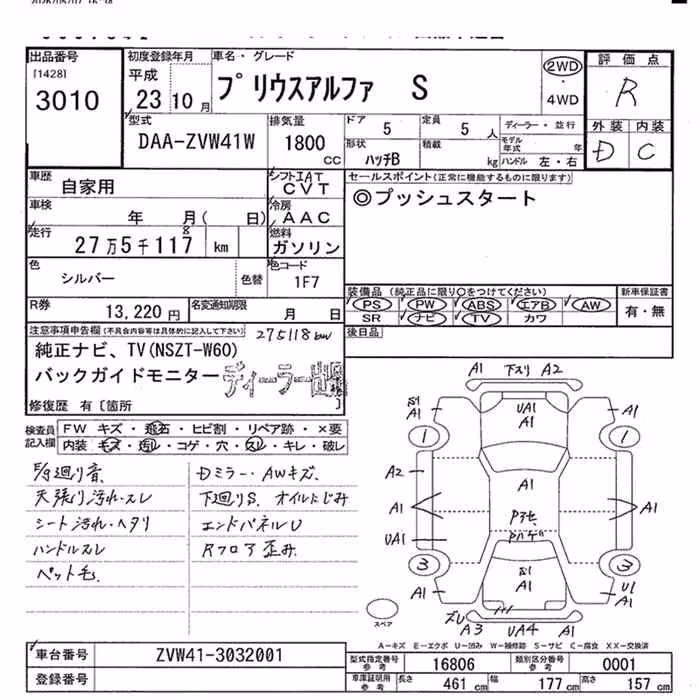 出品番号
[1428]
3010
初度登録年月
平成
23 10 月
車名・グレード
プリウスアルファ S
2WD
・
4WD
評価点
R
外装 内装
D C
型式
DAA-ZVW41W
排気量
1800
CC
ドア 5
定員 5 人
形状
ハッチB
積載 kg
ディーラー・並行
モデル年式 年
ハンドル 左・右
車歴
自家用
シフト IAT
CVT
セールスポイント(正常に機能するものに限ります)
◎プッシュスタート
車検
年 月( 日)
冷房
AAC
走行
27万5千117 km
8
燃料
ガソリン
色
シルバー
色替
色コード
1F7
装備品 (純正品に限り○をつけてください)
PS PW ABS エアB AW
SR ナビ TV カワ
新車保証書
有・無
R券
13,220円
名変通知期限
月 日
後日品
注意事項申告欄(不具合内容等は具体的に記入して下さい)
275118km
純正ナビ、TV(NSZT-W60)
バックガイドモニター
ディーラー出品
修復歴 有〔箇所 〕
検査員
記入欄
FW キズ・飛石・ヒビ割・リペア跡・×要
内装 キズ・汚レ・コゲ・穴・スレ・キレ・破レ
天張り汚れ・スレ
シート汚れ・ヘタリ
ハンドルスレ
ペット毛
Dミラー・AWキズ
下廻りS オイルにじみ
エンドパネルU
Rフロア歪み
A1 下スリ A2
S1
A1
UA1
A1
A1
1
1
A2
A1
A1
A1
UA1
3
3
S1
A1
A1
U1
A1
ズレ
A3 UA4 A1
スペア
A-キズ E-エクボ U-凹み W-補修跡 S-サビ C-腐食 XX-交換済
車台番号
ZVW41-3032001
登録番号
型式指定番号
参考
16806
類別区分番号
参考
0001
車庫証明用
参考
長さ 461 cm
幅 177 cm
高さ 157 cm